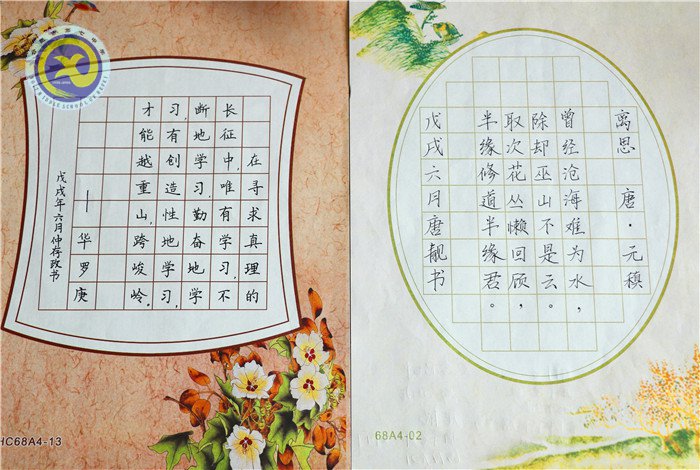 在寻求真理的
长征中,唯有学习,不
断地学习,勤奋地学
习,有创造性地学习,
才能越重山,跨峻岭。
—华罗庚
戊戌年六月仲存政书
HC68A4-13
离思 唐·元稹
曾经沧海难为水,
除却巫山不是云。
取次花丛懒回顾,
半缘修道半缘君。
戊戌六月唐靓书
68A4-02
MIDDLE SCHOOL OF HEFEI